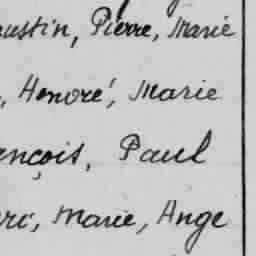 ustin, Pierre, Marie
, Honoré, Marie
ençois, Paul
arc, Marie, Ange